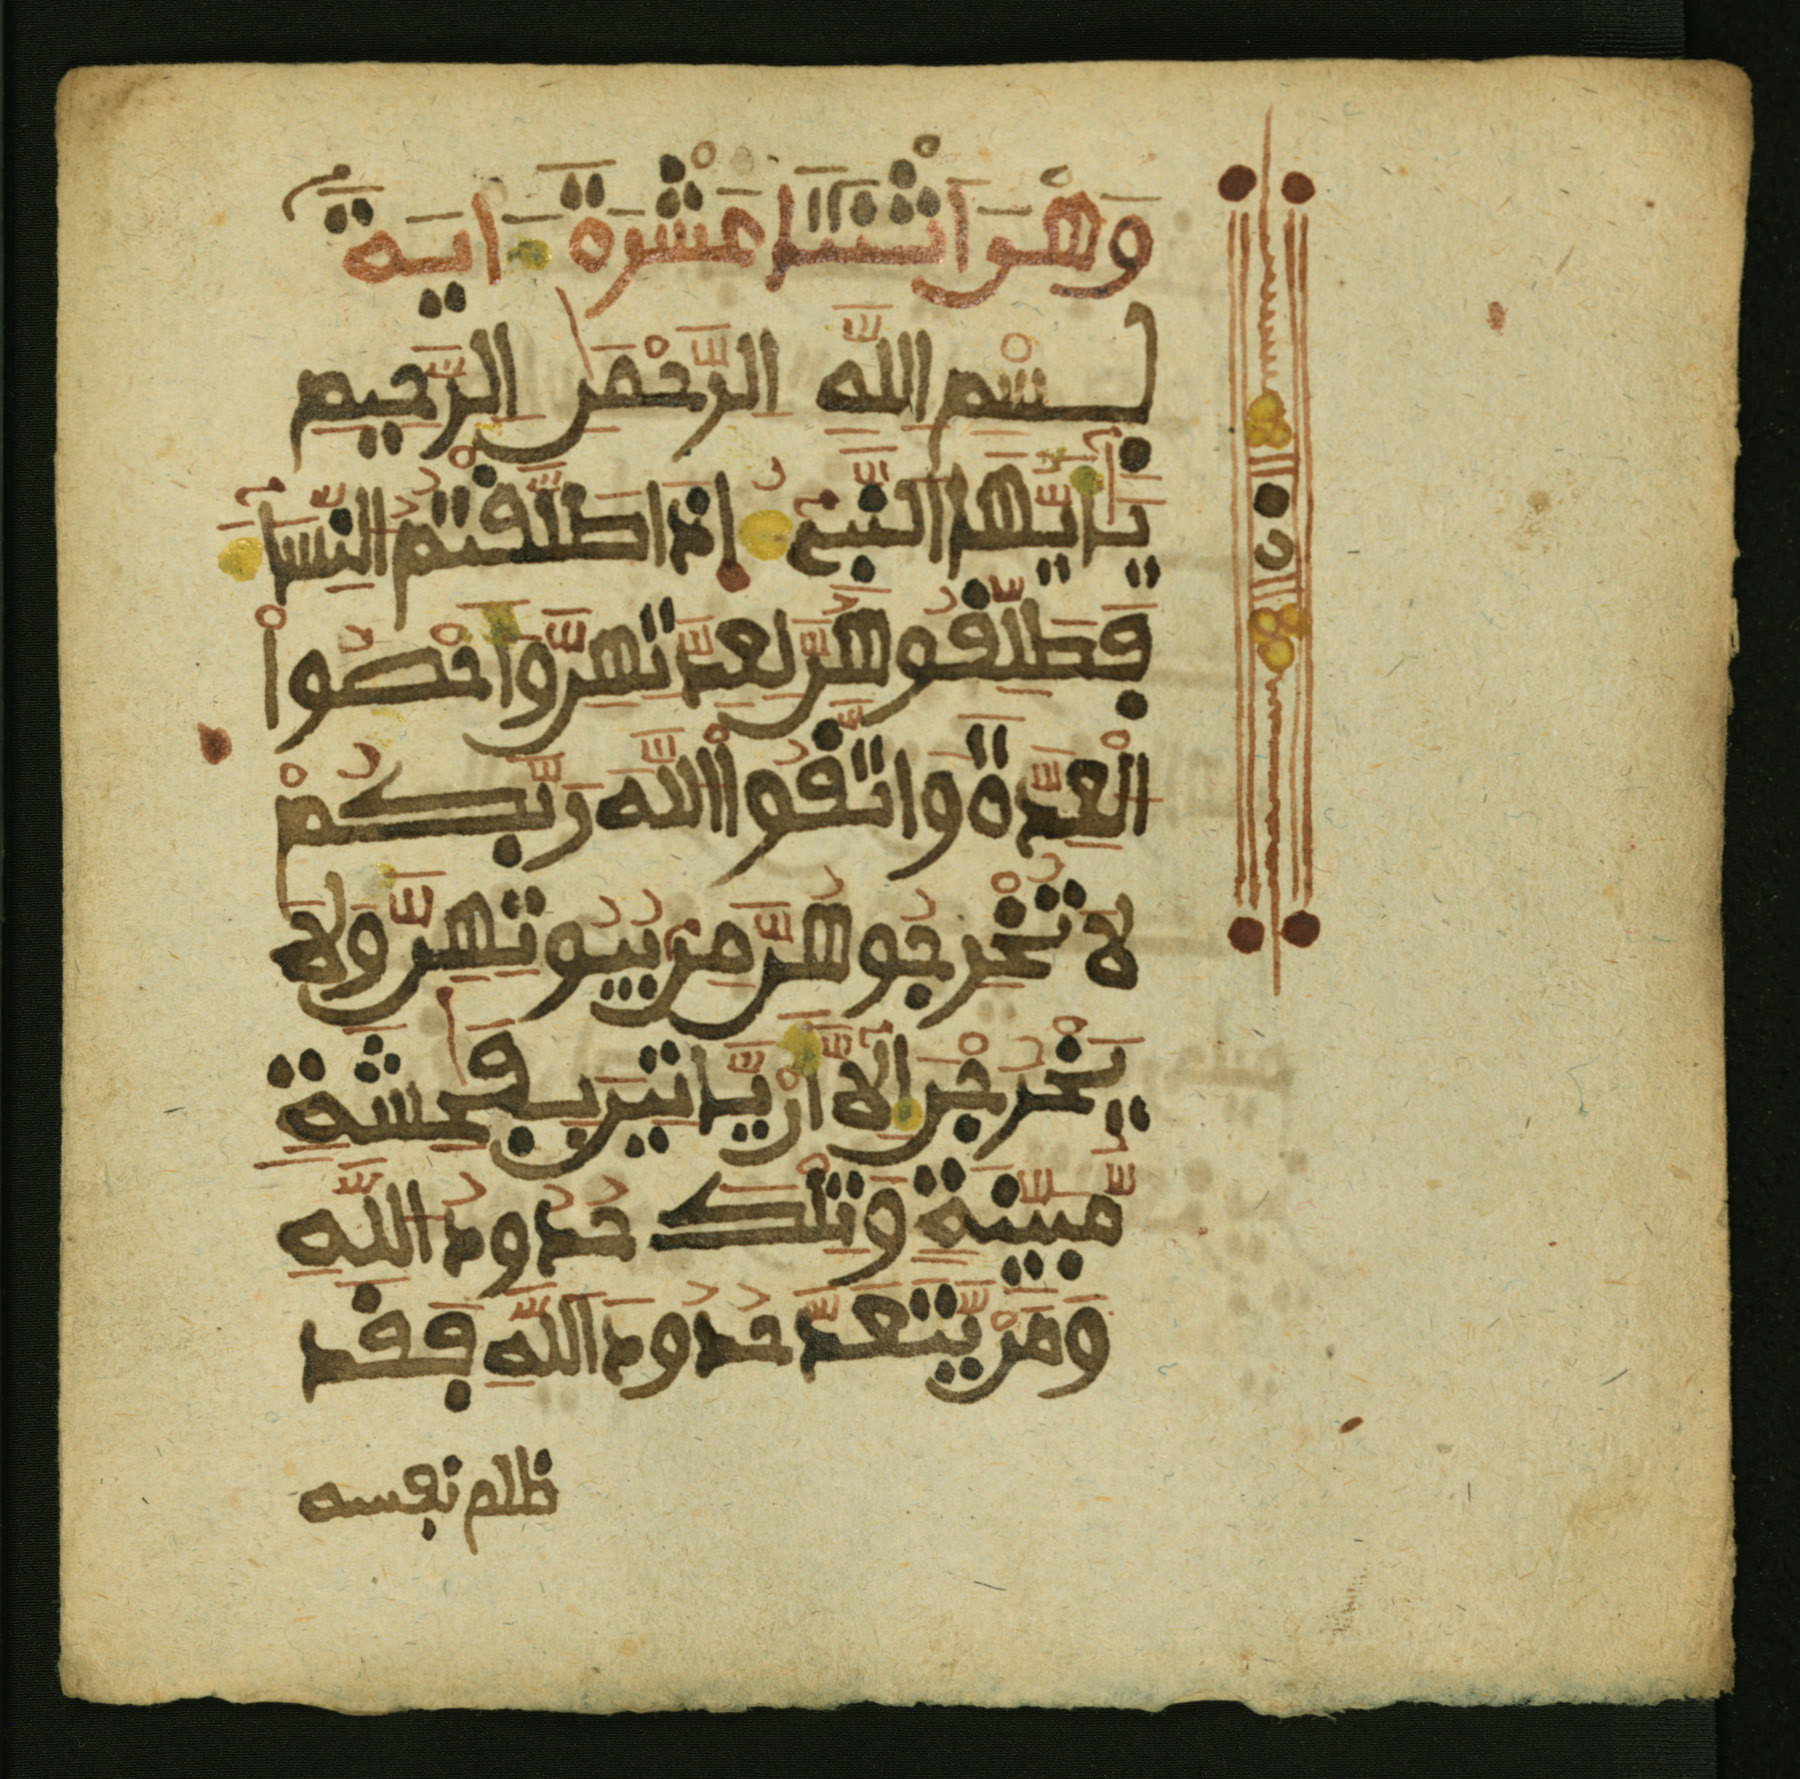 وَهْوَ اثْنَتَا عَشْرَةَ ءَايَةً
بِسْمِ اللَّهِ الرَّحْمَٰنِ الرَّحِيمِ
يَٰٓأَيُّهَا النَّبِيءُ إِذَا طَلَّقْتُمُ النِّسَآءَ
فَطَلِّقُوهُنَّ لِعِدَّتِهِنَّ وَأَحْصُوا
الْعِدَّةَ وَاتَّقُوا اللَّهَ رَبَّكُمْ
لَا تُخْرِجُوهُنَّ مِنۢ بُيُوتِهِنَّ وَلَا
يَخْرُجْنَ إِلَّآ أَنْ يَّاتِينَ بِفَٰحِشَةٍ
مُّبَيَّنَةٍ وَتِلْكَ حُدُودُ اللَّهِ
وَمَنْ يَّتَعَدَّ حُدُودَ اللَّهِ فَقَد
ظلم نفسه